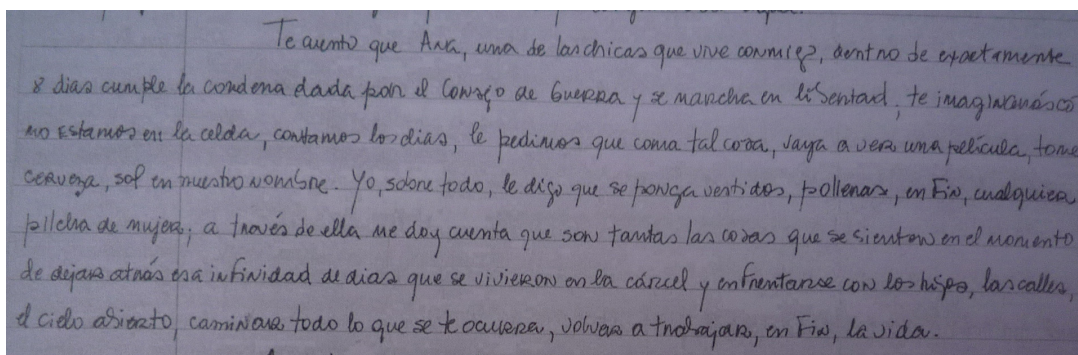 Te cuento que Ana, una de las chicas que vive conmigo, dentro de exactamente
8 dias cumple la condena dada por el Consejo de Guerra y se marcha en libertad, te imaginarás có
mo Estamos en la celda, contamos los dias, le pedimos que coma tal cosa, vaya a ver una película, tome
cerveza, sol en nuestro nombre. Yo, sobre todo, le digo que se ponga vestidos, polleras, en Fin, cualquier
pilcha de mujer; a través de ella me doy cuenta que son tantas las cosas que se sienten en el momento
de dejar atrás esa infinidad de dias que se vivieron en la cárcel y enfrentarse con los hijos, las calles,
el cielo abierto, caminar todo lo que se te ocurra, volver a trabajar, en Fin, la vida.